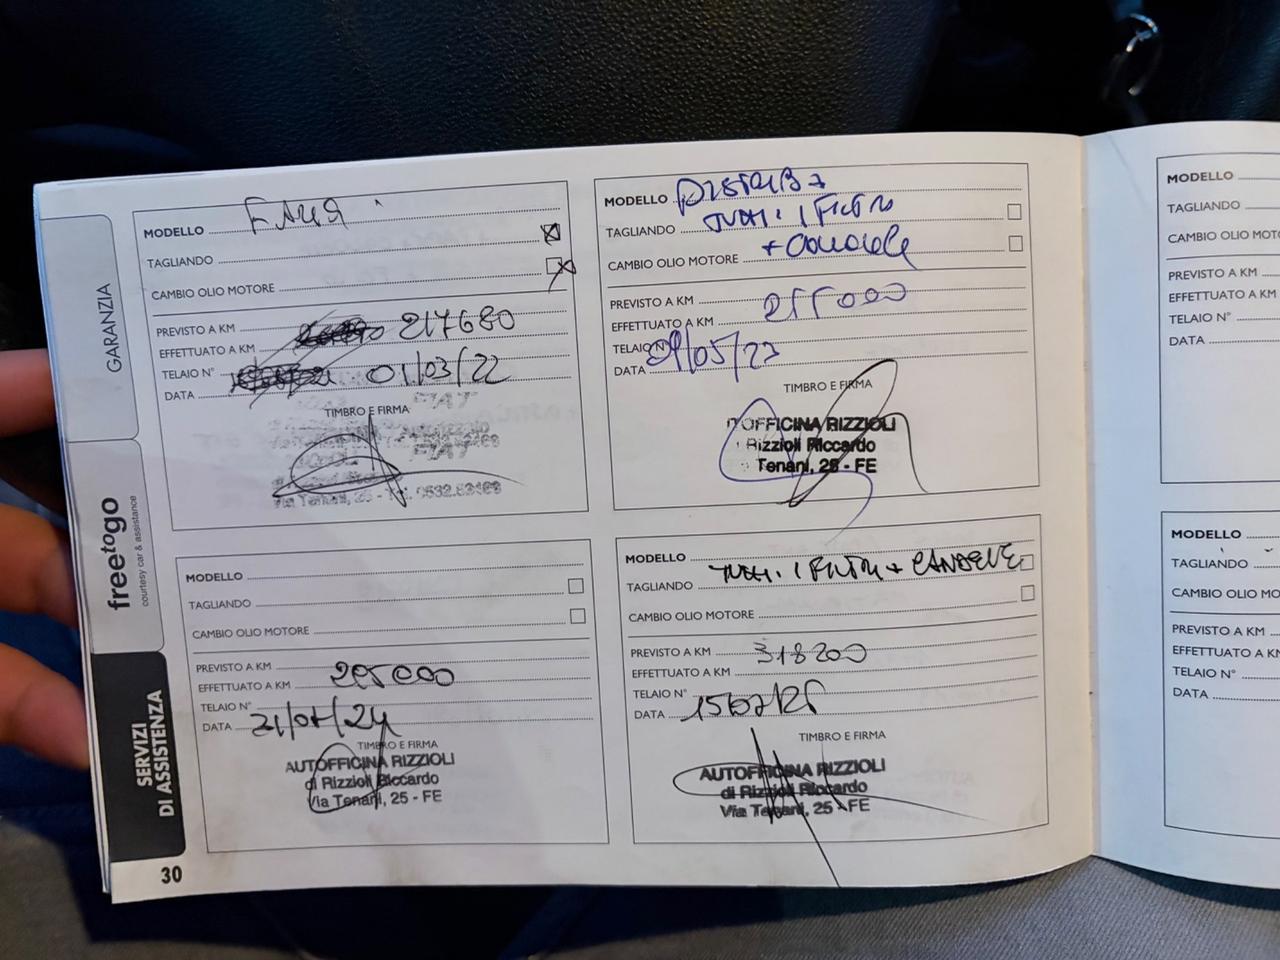 GARANZIA
freetogo
courtesy car & assistance
SERVIZI
DI ASSISTENZA
MODELLO
TAGLIANDO
CAMBIO OLIO MOTORE
PREVISTO A KM 217680
EFFETTUATO A KM
TELAIO N° 01/03/22
DATA
TIMBRO E FIRMA
FIAT
FIAT
Via Tenani, 25 - Tel. 0532.
MODELLO
TAGLIANDO TUTTI I FILTRI
CAMBIO OLIO MOTORE + CANDELE
PREVISTO A KM
EFFETTUATO A KM 255000
TELAIO N°
DATA
TIMBRO E FIRMA
TOFFICINA RIZZIOLI
i Rizzioli Riccardo
Tenani, 25 - FE
MODELLO
TAGLIANDO
CAMBIO OLIO MOTORE
PREVISTO A KM
EFFETTUATO A KM 295000
TELAIO N°
DATA
TIMBRO E FIRMA
AUTOFFICINA RIZZIOLI
di Rizzioli Riccardo
Via Tenani, 25 - FE
MODELLO
TAGLIANDO TUTTI I FILTRI + CANDELE
CAMBIO OLIO MOTORE
PREVISTO A KM 318200
EFFETTUATO A KM
TELAIO N°
DATA
TIMBRO E FIRMA
AUTOFFICINA RIZZIOLI
di Rizzioli Riccardo
Via Tenani, 25 - FE
30
MODELLO
TAGLIANDO
CAMBIO OLIO MOTO
PREVISTO A KM
EFFETTUATO A KM
TELAIO N°
DATA
MODELLO
TAGLIANDO
CAMBIO OLIO MO
PREVISTO A KM
EFFETTUATO A K
TELAIO N°
DATA